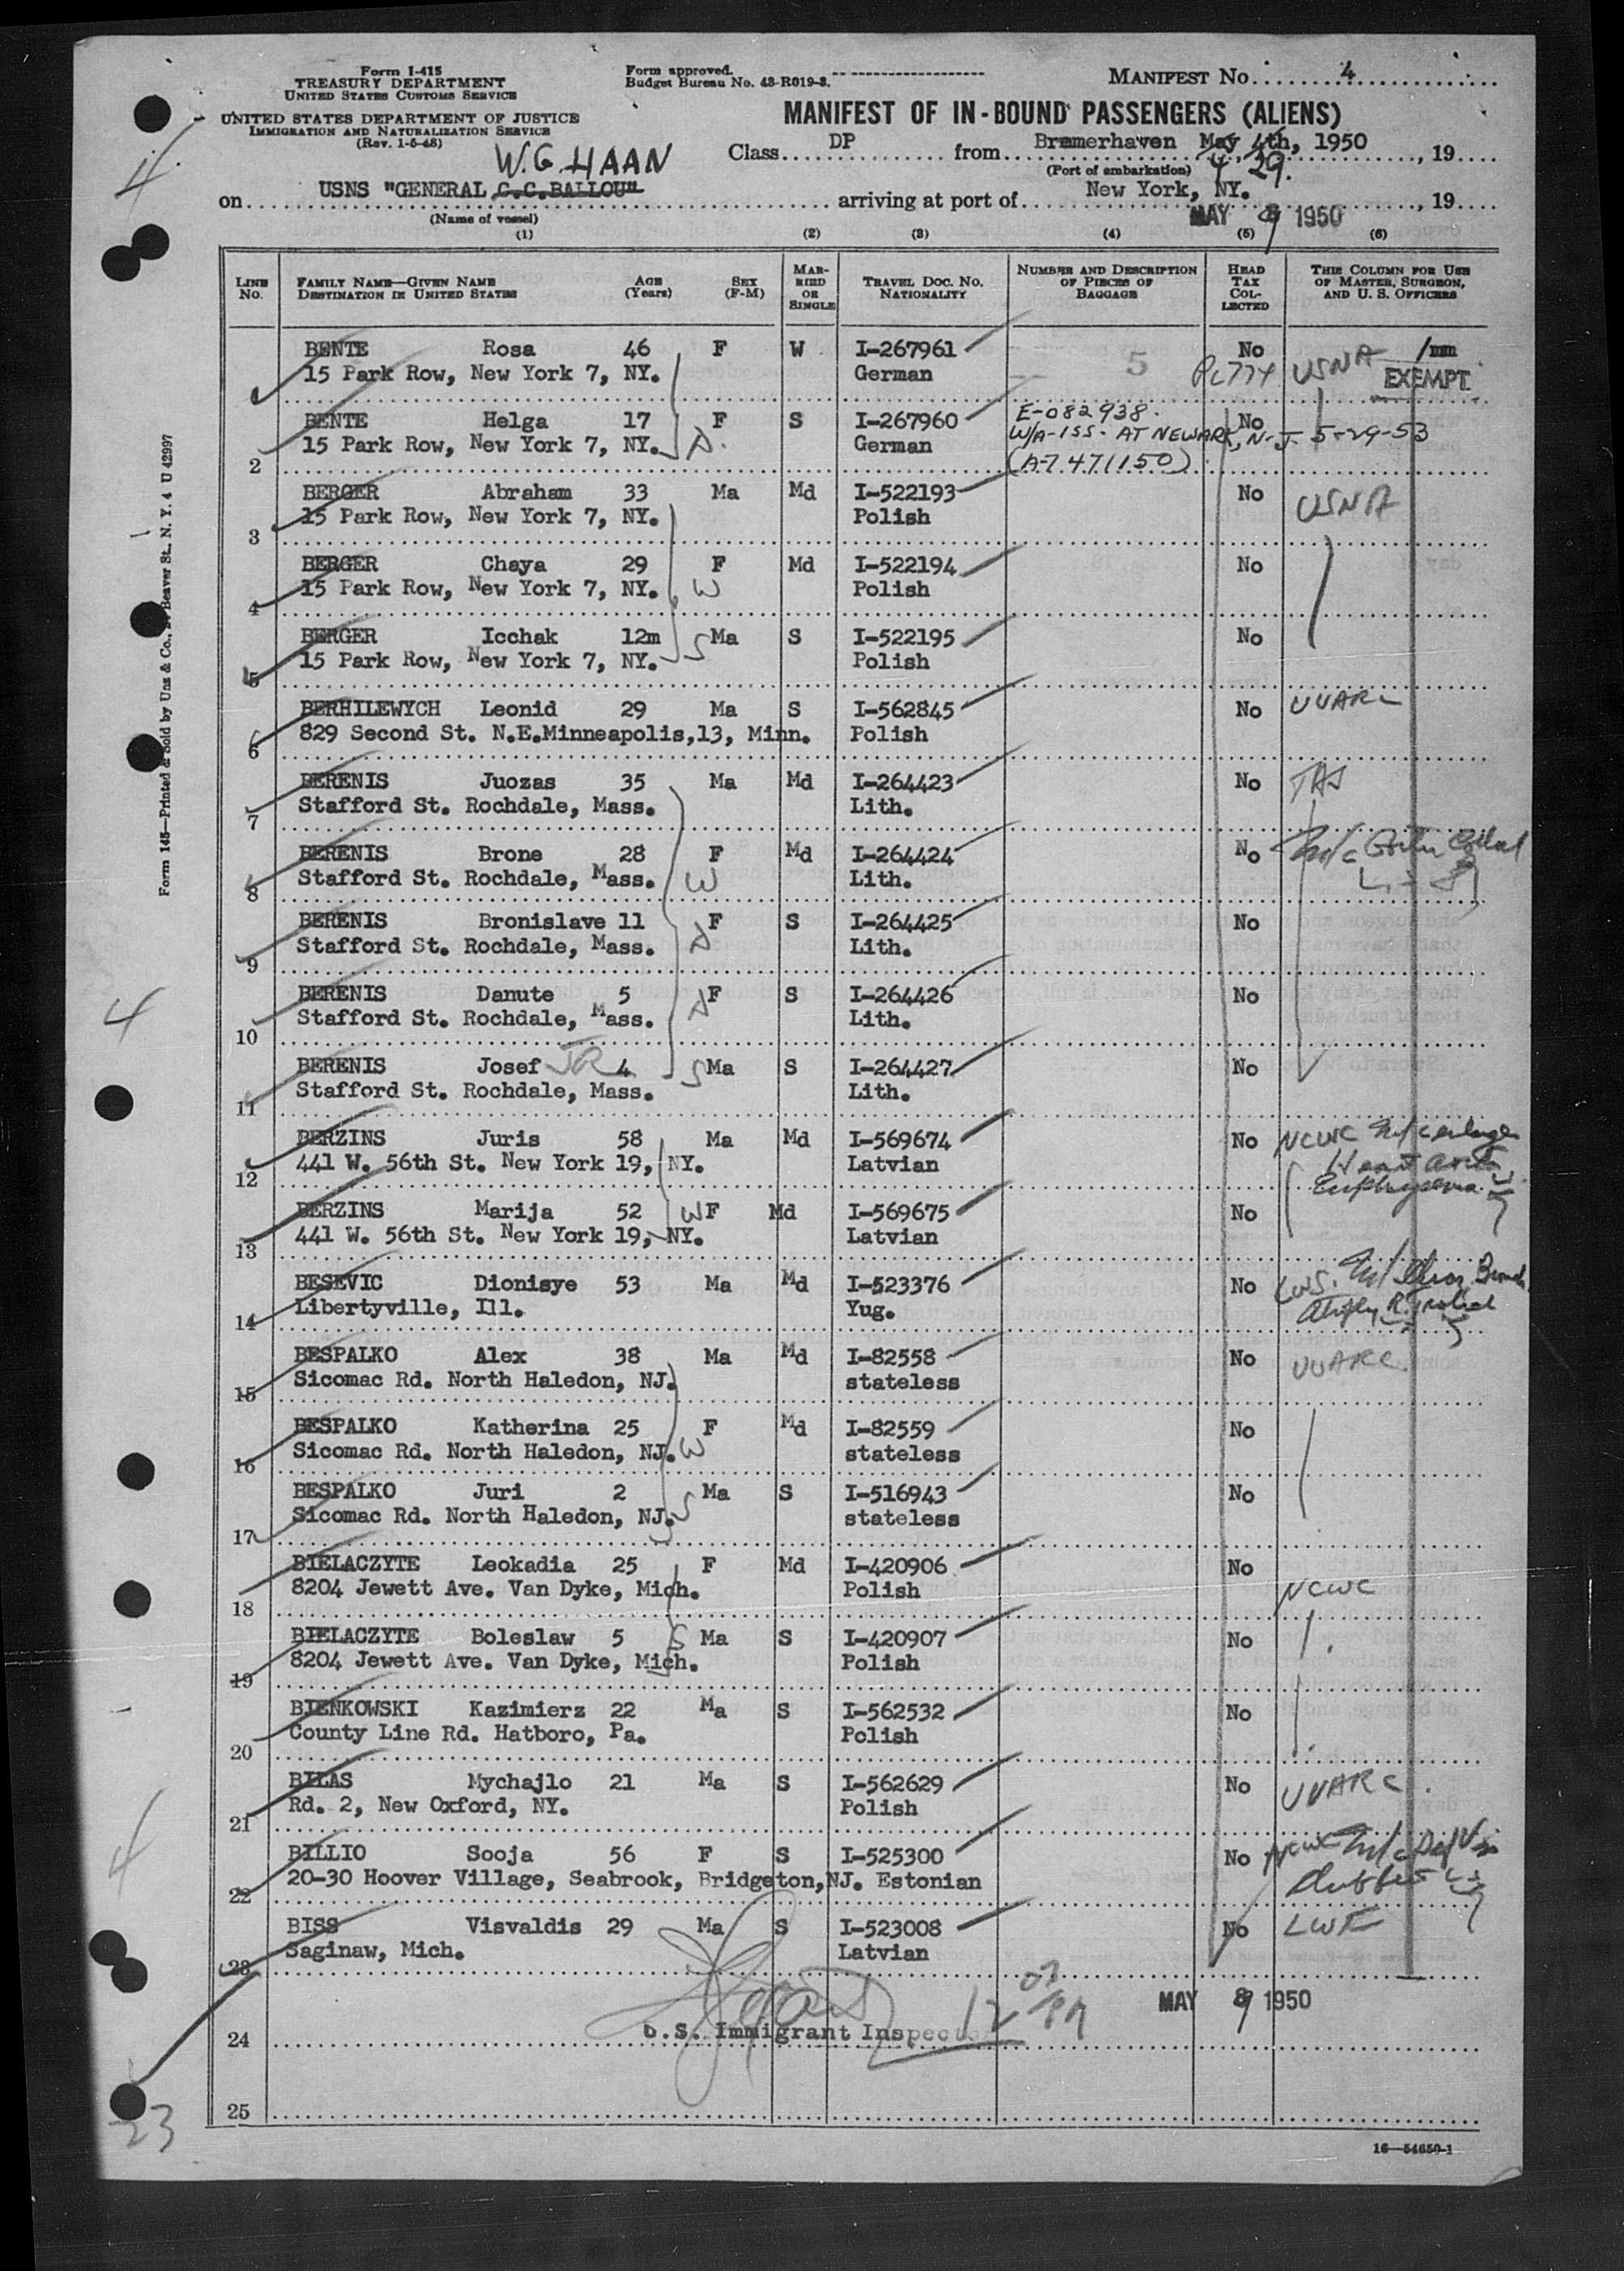 Form I-415
TREASURY DEPARTMENT
UNITED STATES CUSTOMS SERVICE
UNITED STATES DEPARTMENT OF JUSTICE
IMMIGRATION AND NATURALIZATION SERVICE
(Rev. 1-5-48)
Form approved.
Budget Bureau No. 43-R019-3.
MANIFEST No. 4
MANIFEST OF IN-BOUND PASSENGERS (ALIENS)
Class DP from Bremerhaven May 4th, 1950, 19
(Port of embarkation) 4 29.
W.G.HAAN
on USNS "GENERAL C.C.BALLOU" arriving at port of New York, NY., 19
(Name of vessel) MAY 9 1950
(1) (2) (3) (4) (5) (6)
LINE No. FAMILY NAME—GIVEN NAME DESTINATION IN UNITED STATES AGE (Years) SEX (F-M) MARRIED OR SINGLE TRAVEL DOC. NO. NATIONALITY NUMBER AND DESCRIPTION OF PIECES OF BAGGAGE HEAD TAX COLLECTED THIS COLUMN FOR USE OF MASTER, SURGEON, AND U. S. OFFICERS
BENTE Rosa 46 F W I-267961 5 No
15 Park Row, New York 7, NY. German PL774 USNA EXEMPT
BENTE Helga 17 F S I-267960 E-082938. No
15 Park Row, New York 7, NY. D. German W/A-ISS- AT NEWARK, N-J- 5-29-53
2 (A-7 471150)
BERGER Abraham 33 Ma Md I-522193 No USNA
15 Park Row, New York 7, NY. Polish
3
BERGER Chaya 29 F Md I-522194 No
15 Park Row, New York 7, NY. W Polish
4
BERGER Icchak 12m S Ma S I-522195 No
15 Park Row, New York 7, NY. Polish
5
BERHILEWYCH Leonid 29 Ma S I-562845 No UUARC
829 Second St. N.E.Minneapolis,13, Minn. Polish
6
BERENIS Juozas 35 Ma Md I-264423 No
Stafford St. Rochdale, Mass. Lith.
7
BERENIS Brone 28 F Md I-264424 No
Stafford St. Rochdale, Mass. W Lith.
8
BERENIS Bronislave 11 F S I-264425 No
Stafford St. Rochdale, Mass. D Lith.
9
BERENIS Danute 5 D F S I-264426 No
Stafford St. Rochdale, Mass. Lith.
10
BERENIS Josef JR 4 S Ma S I-264427 No
Stafford St. Rochdale, Mass. Lith.
11
BERZINS Juris 58 Ma Md I-569674 No NCWC
441 W. 56th St. New York 19, NY. Latvian Heart
12
BERZINS Marija 52 W F Md I-569675 No
441 W. 56th St. New York 19, NY. Latvian
13
BESEVIC Dionisye 53 Ma Md I-523376 No
Libertyville, Ill. Yug.
14
BESPALKO Alex 38 Ma Md I-82558 No UUARC.
Sicomac Rd. North Haledon, NJ. stateless
15
BESPALKO Katherina 25 F Md I-82559 No
Sicomac Rd. North Haledon, NJ. W stateless
16
BESPALKO Juri 2 Ma S I-516943 No
Sicomac Rd. North Haledon, NJ. S stateless
17
BIELACZYTE Leokadia 25 F Md I-420906 No
8204 Jewett Ave. Van Dyke, Mich. Polish NCWC
18
BIELACZYTE Boleslaw 5 S Ma S I-420907 No
8204 Jewett Ave. Van Dyke, Mich. Polish
19
BIENKOWSKI Kazimierz 22 Ma S I-562532 No
County Line Rd. Hatboro, Pa. Polish
20
BILAS Mychajlo 21 Ma S I-562629 No UUARC.
Rd. 2, New Oxford, NY. Polish
21
BILLIO Sooja 56 F S I-525300 No NCWC
20-30 Hoover Village, Seabrook, Bridgeton,NJ. Estonian
22
BISS Visvaldis 29 Ma S I-523008 No LWF
Saginaw, Mich. Latvian
23
MAY 9 1950
U.S. Immigrant Inspector
24
25
16—54650-1
Form 145—Printed & Sold by Unz & Co., Beaver St., N. Y. 4 U 42997
4
4
4
23